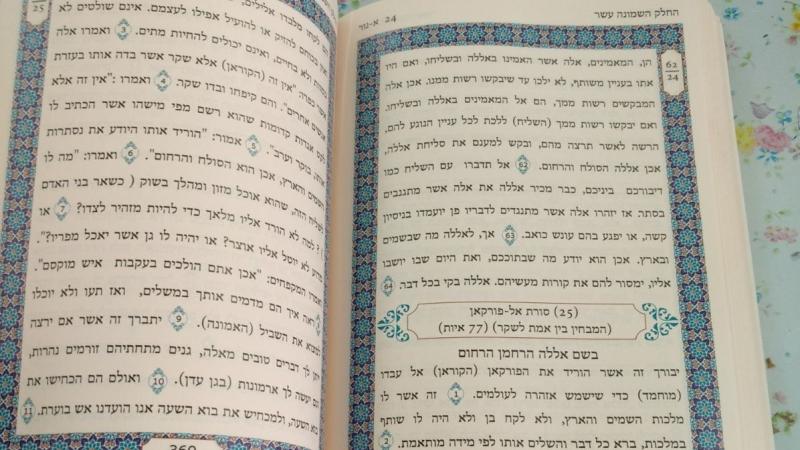 החלק השמונה עשר
24 א-נור
62
24
הן, המאמינים, אלה אשר האמינו באללה ובשליחו, ואם היו
אתו בעניין משותף, לא ילכו עד שיבקשו רשות ממנו. אכן אלה
המבקשים רשות ממך, הם אל המאמינים באללה ובשליחו.
ואם יבקשו רשות ממך (השליח) ללכת לכל עניין הנוגע להם,
הרשה לאשר תרצה מהם, ובקש למענם את סליחת אללה,
אכן אללה הסולח והרחום. 62 אל תדברו עם השליח כמו
דיבורכם ביניכם, כבר מכיר אללה את אלה אשר מתגנבים
בסתר. אז יזהרו אלה אשר מתנגדים לדבריו פן יועמדו בניסיון
קשה, או יפגע בהם עונש כואב. 63 אך, לאללה מה שבשמים
ובארץ. אכן הוא יודע מה שבתוככם, ואת היום שבו יושבו
אליו, ימסור להם את קורות מעשיהם. אללה בקי בכל דבר. 64
(25) סורת אל-פורקאן
(המבחין בין אמת לשקר) (77 איות)
בשם אללה הרחמן הרחום
יבורך זה אשר הוריד את הפורקאן (הקוראן) אל עבדו
(מוחמד) כדי שישמש אזהרה לעולמים. 1 זה אשר לו
מלכות השמים והארץ, ולא לקח בן ולא היה לו שותף
במלכות, ברא כל דבר והשלים אותו לפי מידה מותאמת. 2
25
לקחו מלבדו אלילים,
בכוחם להזיק או להועיל אפילו לעצמם. אינם שולטים לא
ולא בחיים, ואינם יכולים להחיות מתים. 3 ואמרו אלה
כפרו: "אין זה (הקוראן) אלא שקר אשר בדה אותו בעזרת
אנשים אחרים". והם קיפחו ובדו שקר. 4 ואמרו: "אין זה אלא
אגדות קדומות שהוא רשם מפי מישהו אשר הכתיב לו
אותן, בוקר וערב". 5 אמור: "הוריד אותו היודע את נסתרות
השמים והארץ, אכן הוא הסולח והרחום". 6 ואמרו: "מה לו
לשליח הזה, שהוא אוכל מזון ומהלך בשוק (כשאר בני האדם
? למה לא הורד אליו מלאך כדי להיות מזהיר לצדו? 7 או
לא יוטל אליו אוצר? או יהיה לו גן אשר יאכל מפריו?".
המקפחים: "אכן אתם הולכים בעקבות איש מוקסם".
ראה איך הם מדמים אותך במשלים, ואז תעו ולא יוכלו
למצוא את השביל (האמונה). 9 יתברך זה אשר אם ירצה
ייתן לך דברים טובים מאלה, גנים מתחתיהם זורמים נהרות,
וגם יעשה לך ארמונות (בגן עדן). 10 ואולם הם הכחישו את
בוא השעה, ולמכחיש את בוא השעה אנו הועדנו אש בוערת. 11
360